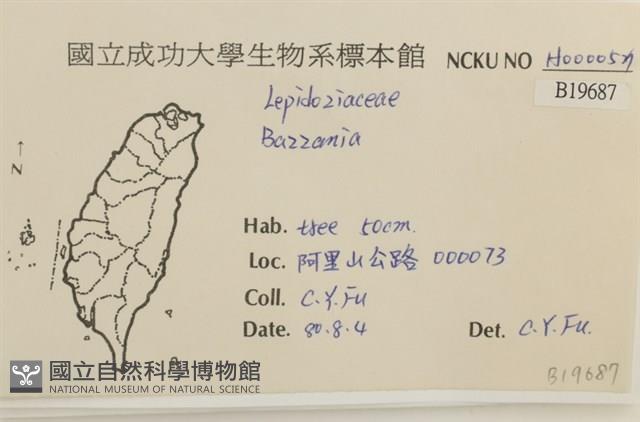 國立成功大學生物系標本館 NCKU NO H00005
B19687
Lepidoziaceae
Bazzania
N
Hab. tree 50cm.
Loc. 阿里山公路 000073
Coll. C.Y.Fu
Date. 80.8.4 Det. C.Y.Fu.
國立自然科學博物館
NATIONAL MUSEUM OF NATURAL SCIENCE
B19687